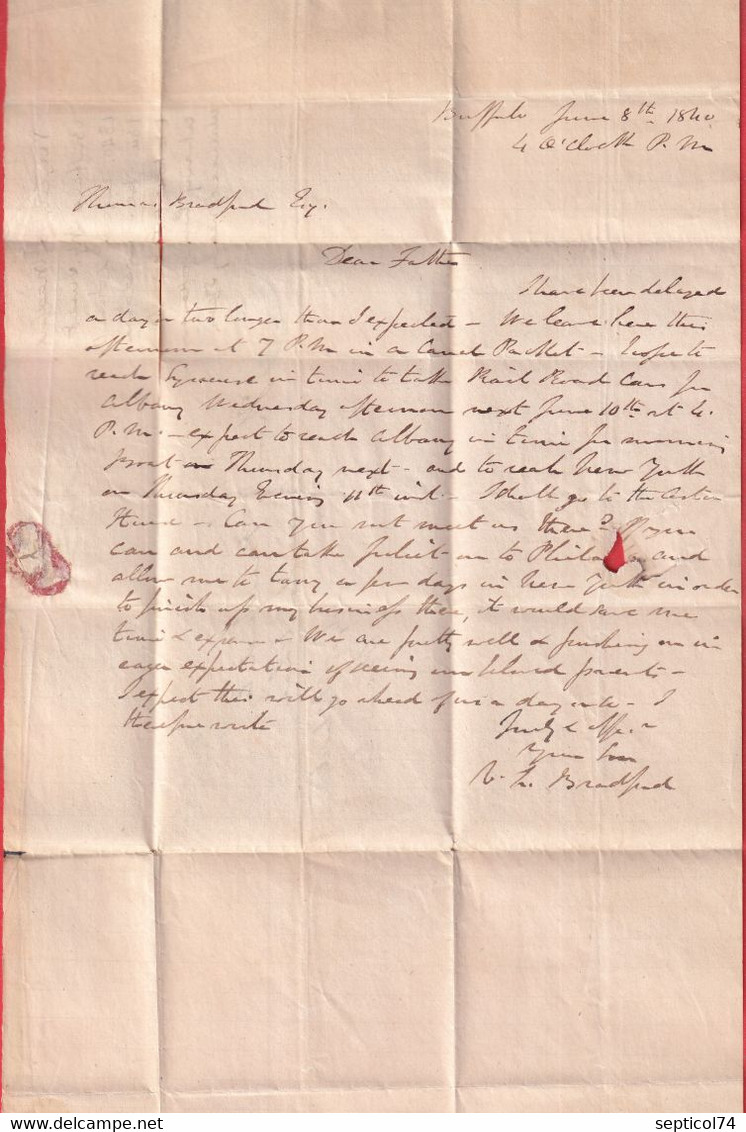 Buffalo June 8th 1840
4 O'Clock P.M
Thomas Bradford Esq.
Dear Father
I have been delayed
a day or two longer than I expected - We leave here this
afternoon at 7 P.M in a Canal Packet - hope to
reach Syracuse in time to take Rail Road Cars for
Albany Wednesday afternoon next June 10th at 4.
P.M. - expect to reach Albany in time for morning
Boat on Thursday next - and to reach New York
on Thursday Evening 11th inst. - I shall go to the Astor
House - Can you not meet us there? If you
can and can take Juliet on to Philada and
allow me to tarry a few days in New York in order
to finish up my business there, it would save me
time & expense - We are pretty well & pushing on in
eager expectation of seeing our beloved parents -
I expect this will go ahead of us a day or so - I
therefore write
Truly & affec.
Your Son
V. L. Bradford
septicol74